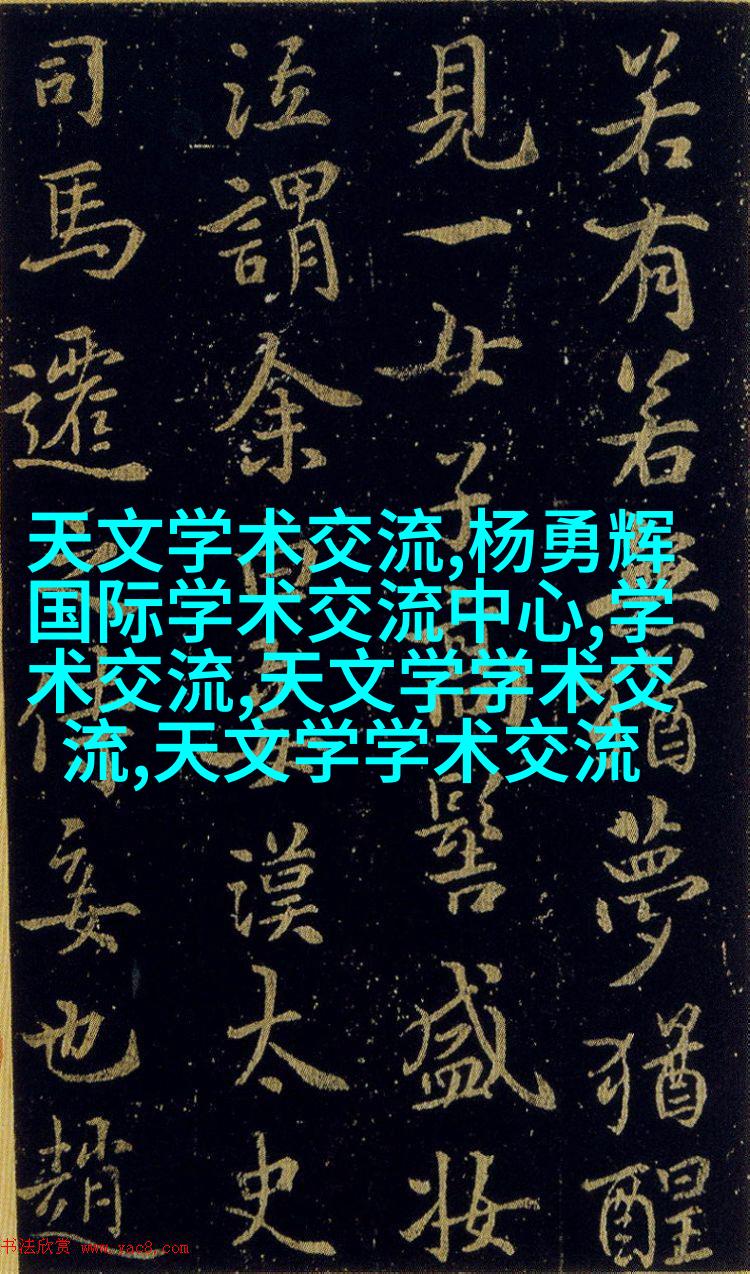 若有若無猶夢猶醒
見一女子高髻盛妝
泣謂余曰妾漢太史
司馬遷之侍妾也趙
天文学术交流,杨勇辉
国际学术交流中心,学
术交流,天文学学术交
流,天文学学术交流
书法欣赏 www.yac8.com